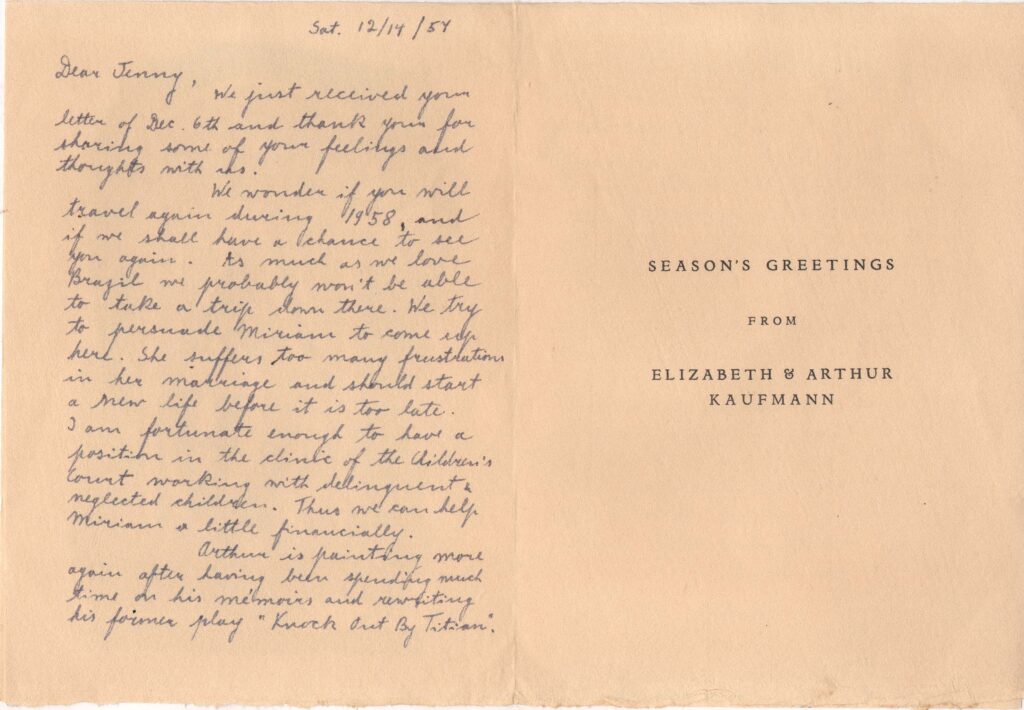 Sat. 12/14/57
Dear Jenny,
We just received your
letter of Dec. 6th and thank your for
sharing some of your feelings and
thoughts with us.
We wonder if you will
travel again during 1958, and
if we shall have a chance to see
you again. As much as we love
Brazil we probably won't be able
to take a trip down there. We try
to persuade Miriam to come up
here. She suffers too many frustrations
in her marriage and should start
a new life before it is too late.
I am fortunate enough to have a
position in the clinic of the Children's
Court working with delinquent &
neglected children. Thus we can help
Miriam a little financially.
Arthur is painting more
again after having been spending much
time on his memoirs and rewriting
his former play "Knock Out By Titian".
SEASON'S GREETINGS
FROM
ELIZABETH & ARTHUR
KAUFMANN